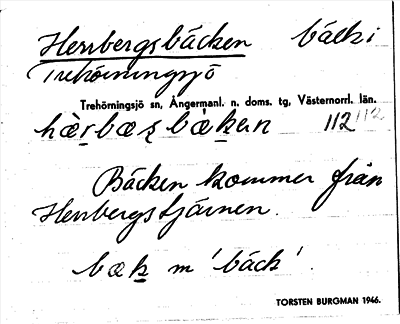 Herrbergsbäcken bäck i
Trehörningsjö
Trehörningsjö sn, Ångermanl. n. doms. tg, Västernorrl. län.
112 112
Bäcken kommer från
Herrbergstjärnen.
bæk m 'bäck'.
TORSTEN BURGMAN 1946.